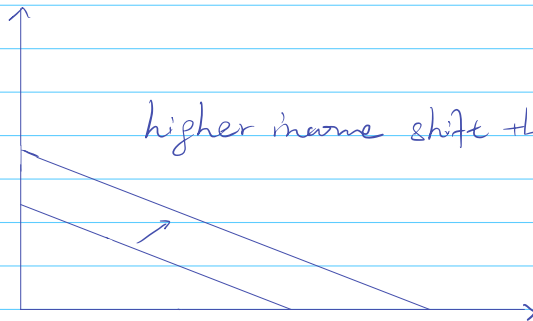 higher income shift